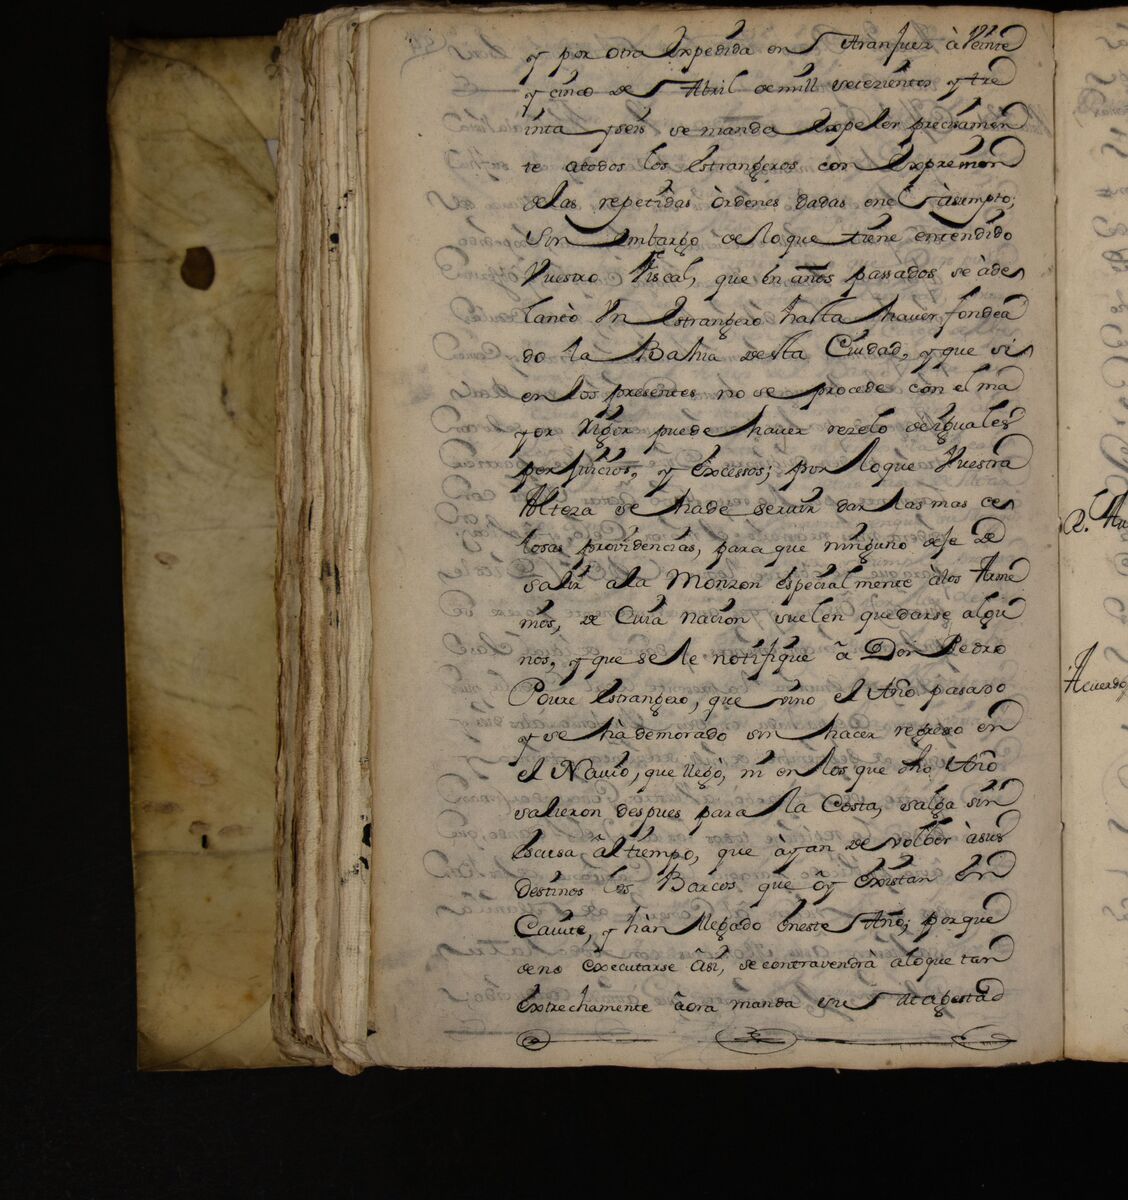 y por otra expedida en Aranjuez à Veinte
y cinco de Abril de mill setezientos y tre
inta y seis se manda Expeler precisamen
te atodos los Estrangeros con Expression
delas repetidas òrdenes dadas enel àsumpto;
Sin Embargo delo que tiene entendido
Vuestro Fiscal, que en años passados se àde
lantò Vn Estrangero hasta haver fondea
do la Bahia desta Ciudad, y que si
en los presentes no se procede con el ma
yor Rigor puede haver rezelo de iguales
perjuicios, y Excessos; por lo que Vuestra
Alteza se hade servir dar las mas ce
losas providencias, para que ninguno deje de
salir ala Monzon especialmente àlos Arme
nios, de Cuia nacion suelen quedarse algu
nos, y que se le notifique â Don Pedro
Estrangero, que vino el Año pasado
y se hà demorado sin hacer regreso en
el Navio, que llegò, ni en los que dho Año
salieron despues para la Costa, salga sin
Escusa âl tiempo, que àyan de volber àsus
destinos los Barcos que ôy Existan En
Cavite, y hàn llegado Eneste Año; porque
deno Executarse âsi, se contravendrà alo que tan
Extrechamente âora manda su Magestad